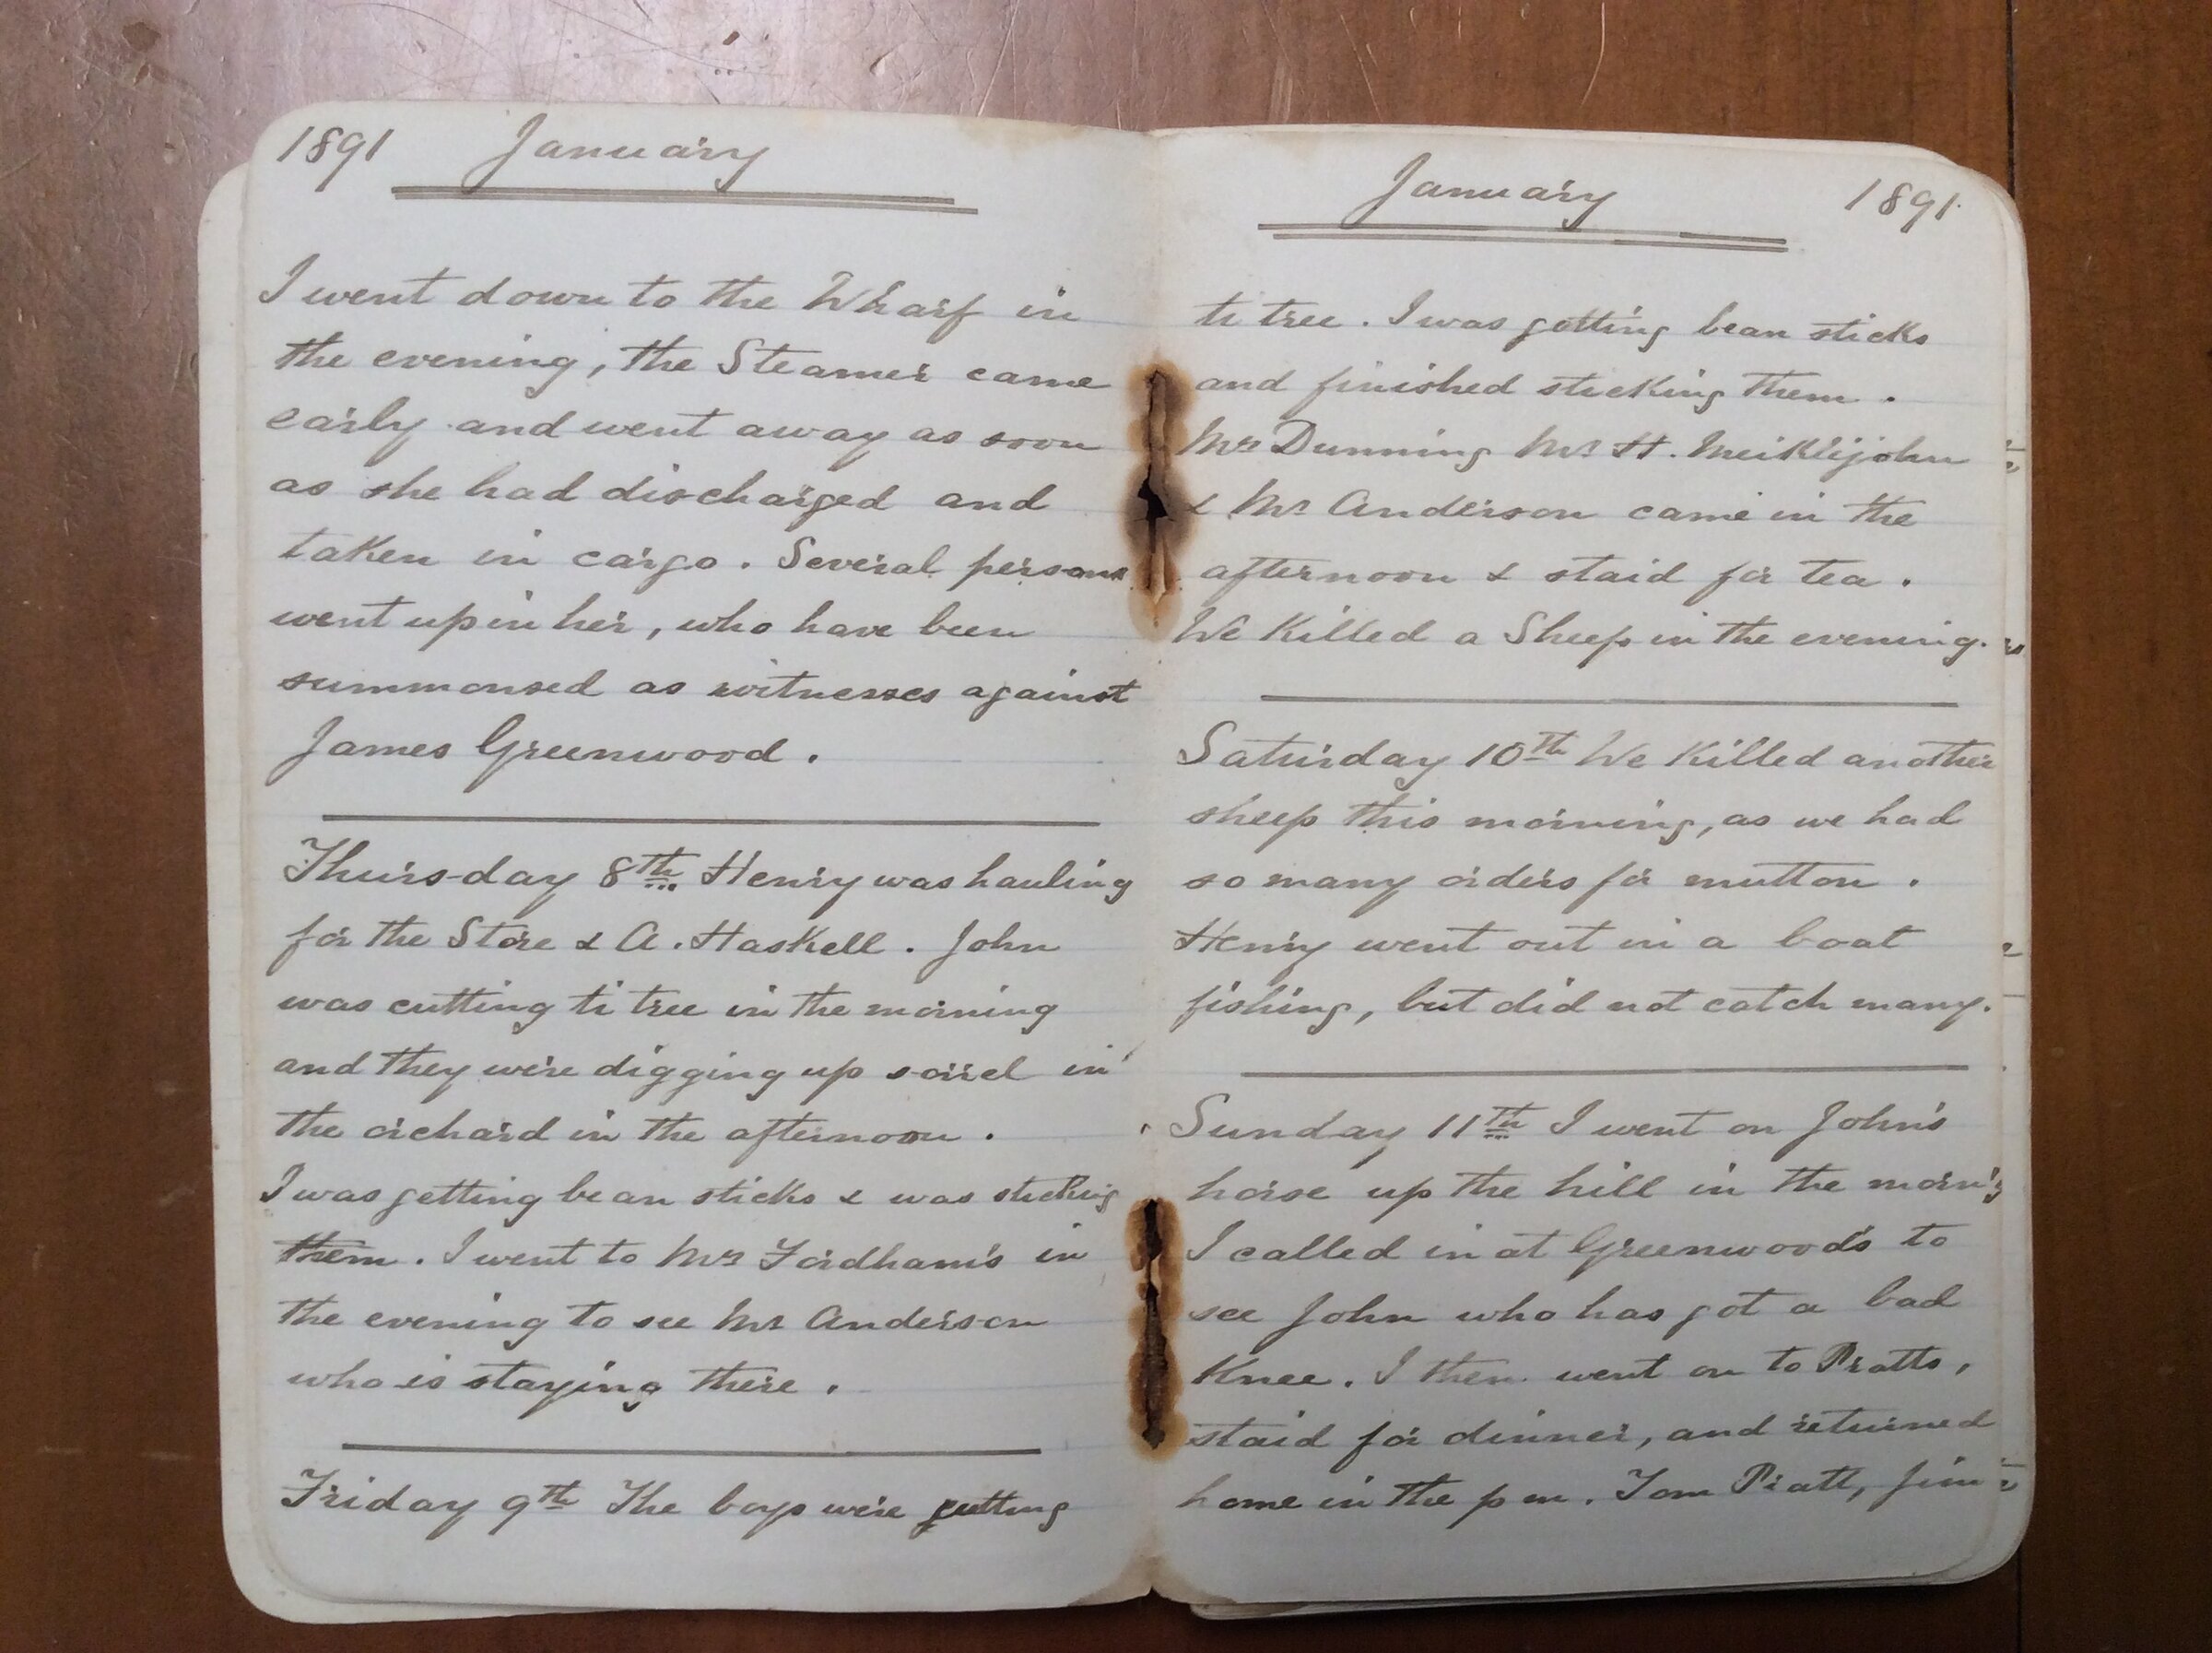 1891 January
I went down to the Wharf in
the evening, the Steamer came
early and went away as soon
as she had discharged and
taken in cargo. Several persons
went up in her, who have been
summonsed as witnesses against
James Greenwood.
Thursday 8th Henry was hauling
for the Store & A. Haskell. John
was cutting ti tree in the morning
and they were digging up sorrel in
the orchard in the afternoon.
I was getting bean sticks & was sticking
them. I went to Mrs Fordham's in
the evening to see Mr Anderson
who is staying there.
Friday 9th The boys were cutting
January 1891
ti tree. I was getting bean sticks
and finished sticking them.
Mrs Dunning Mr H. Meiklijohn
& Mr Anderson came in the
afternoon & staid for tea.
We Killed a Sheep in the evening.
Saturday 10th We Killed another
sheep this morning, as we had
so many orders for mutton.
Henry went out in a boat
fishing, but did not catch many.
Sunday 11th I went on John's
horse up the hill in the morn'g
I called in at Greenwood's to
see John who has got a bad
Knee. I then went on to Pratts,
staid for dinner, and returned
home in the p m. Tom Pratt, Jim